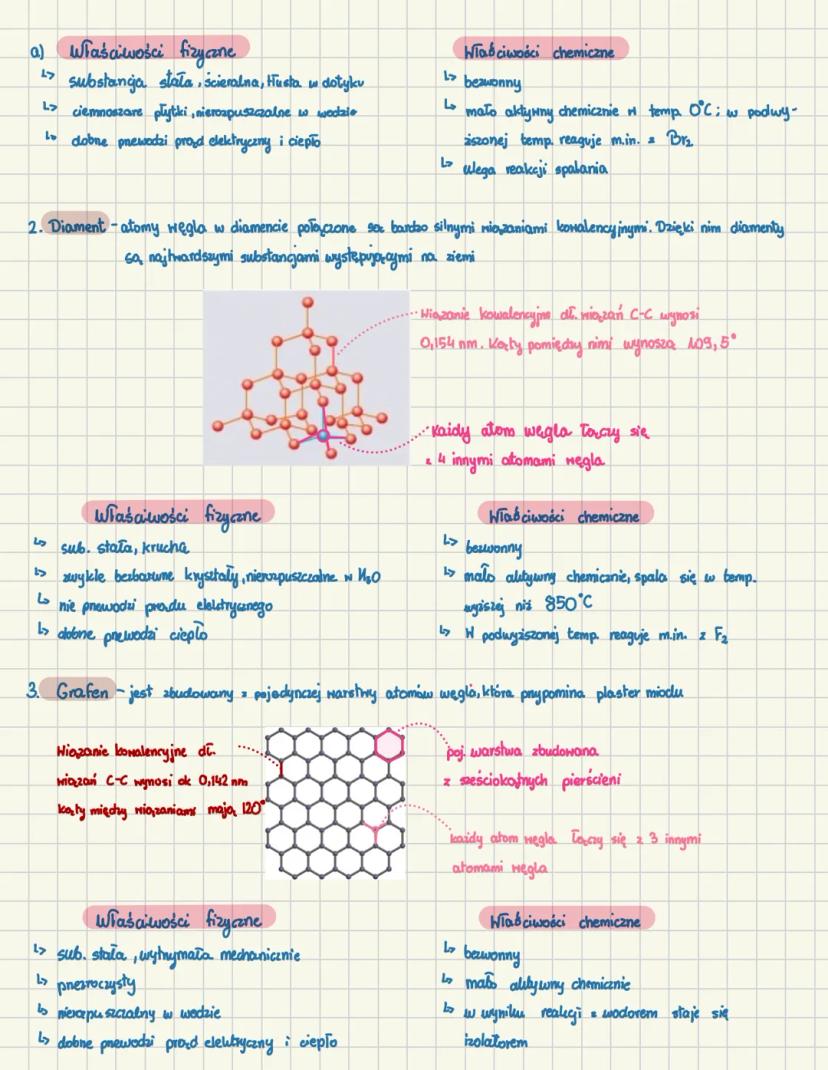 a) Właściwości fizyczne
↳ substancja stała, ścieralna, tłusta w dotyku
↳ ciemnoszare płytki, nierozpuszczalne w wodzie
↳ dobrze przewodzi prąd elektryczny i ciepło
Właściwości chemiczne
↳ bezwonny
↳ mało aktywny chemicznie w temp. 0°C; w podwy-
ższonej temp. reaguje m.in. z Br₂
↳ ulega reakcji spalania
2. Diament - atomy węgla w diamencie połączone są bardzo silnymi wiązaniami kowalencyjnymi. Dzięki nim diamenty
są najtwardszymi substancjami występującymi na ziemi
Wiązanie kowalencyjne dł. wiązań C-C wynosi
0,154 nm. Kąty pomiędzy nimi wynoszą 109,5°
każdy atom węgla łączy się
z 4 innymi atomami węgla
Właściwości fizyczne
↳ sub. stała, krucha
↳ zwykle bezbarwne kryształy, nierozpuszczalne w H₂O
↳ nie przewodzi prądu elektrycznego
↳ dobrze przewodzi ciepło
Właściwości chemiczne
↳ bezwonny
↳ mało aktywny chemicznie, spala się w temp.
wyższej niż 850°C
↳ W podwyższonej temp. reaguje m.in. z F₂
3. Grafen - jest zbudowany z pojedynczej warstwy atomów węgla, która przypomina plaster miodu
Wiązanie kowalencyjne dł.
wiązań C-C wynosi ok 0,142 nm
kąty między wiązaniami mają 120°
poj. warstwa zbudowana
z sześciokątnych pierścieni
każdy atom węgla łączy się z 3 innymi
atomami węgla
Właściwości fizyczne
↳ sub. stała, wytrzymała mechanicznie
↳ przezroczysty
↳ nierozpuszczalny w wodzie
↳ dobrze przewodzi prąd elektryczny i ciepło
Właściwości chemiczne
↳ bezwonny
↳ mało aktywny chemicznie
↳ w wyniku reakcji z wodorem staje się
izolatorem